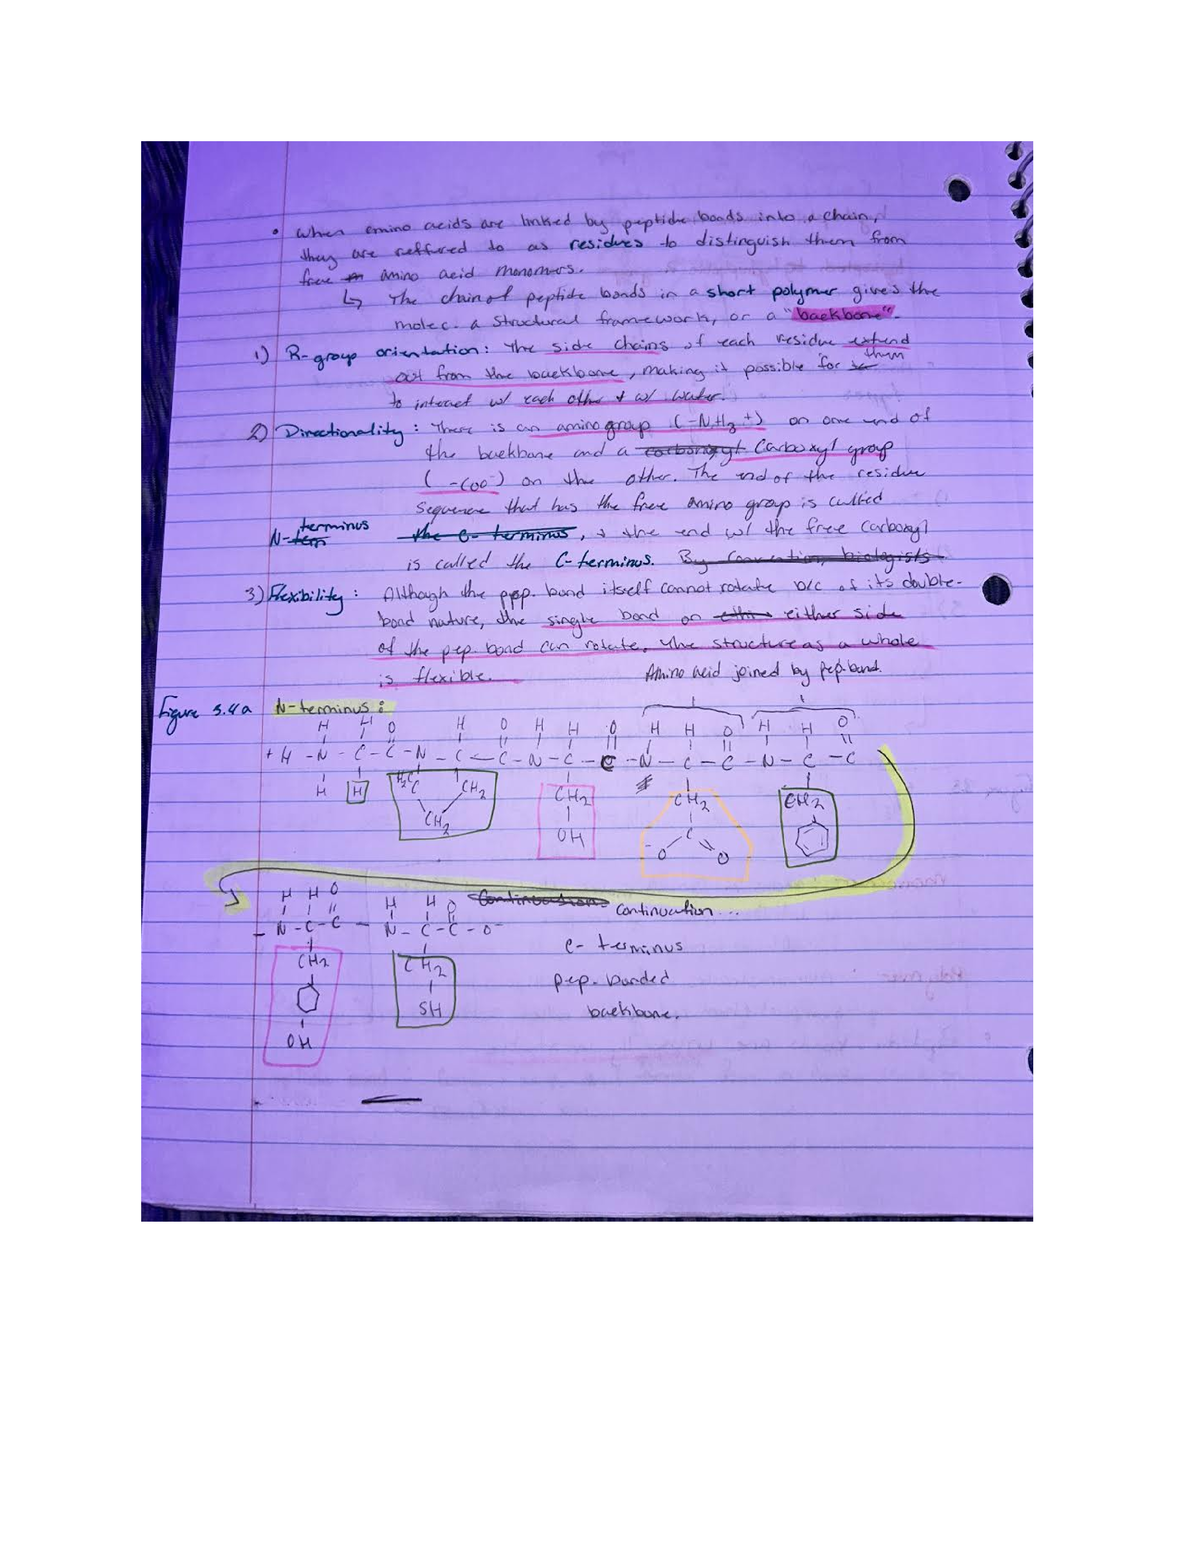 • When amino acids are linked by peptide bonds into a chain,
they are reffured to as residues to distinguish them from
free amino acid monomers.
↳ The chain of peptide bonds in a short polymer gives the
molec. a structural framework, or a "backbone".
1) R-group orientation: The side chains of each residue extend
out from the backbone, making it possible for them
to interact w/ each other + w/ water.
2) Directionality: There is an amino group (-NH3+) on one end of
the backbone and a carboxyl group
(-COO-) on the other. The end of the residue
sequence that has the free amino group is called
N-terminus the C-terminus, + the end w/ the free carboxyl
is called the C-terminus. By convention, biologists
3) Flexibility: Although the pep. bond itself cannot rotate b/c of its double-
bond nature, the single bond on either side
of the pep. bond can rotate. The structure as a whole
is flexible. Amino acid joined by pep. bond.
Figure 3.4a N-terminus:
H H O H O H H O H H O H H O
+H - N - C - C - N - C - C - N - C - C - N - C - C - N - C - C
H H H2C CH2 CH2 CH2 CH2
CH2 OH C
-O O
H H O H H O Continuation Continuation...
- N - C - C - N - C - C - O-
C-terminus
CH2 CH2
pep. bonded
SH backbone.
OH